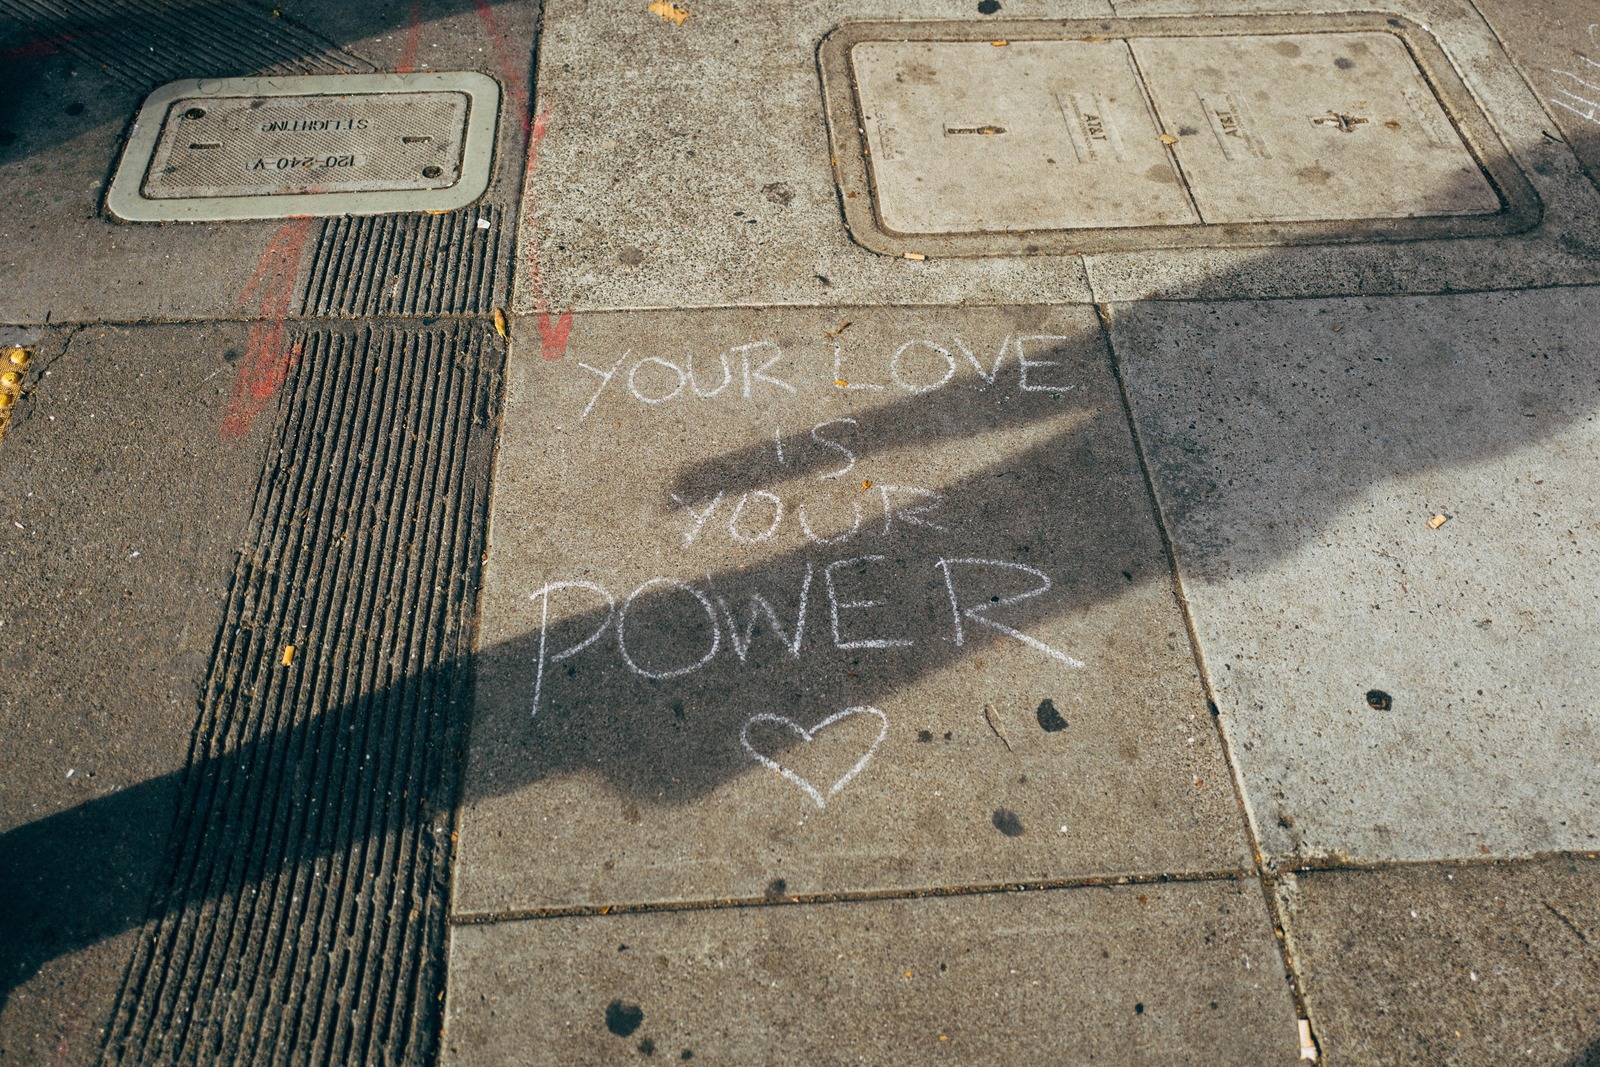 ST LIGHTING
120-240-V
AT&T
AT&T
YOUR LOVE
IS
YOUR
POWER